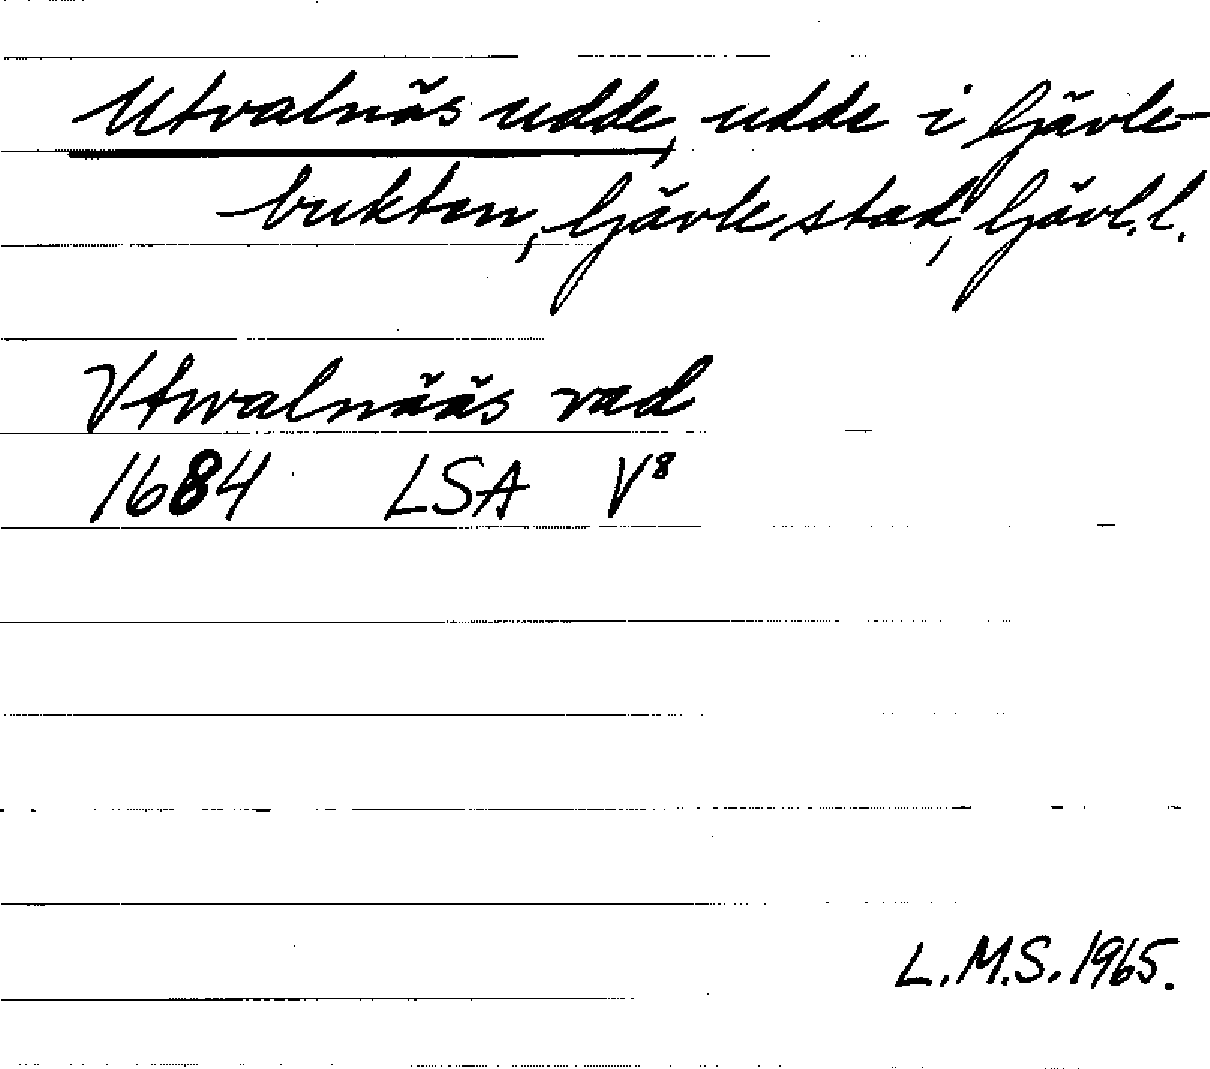 Utvalnäs udde, udde i Gävle-
bukten, Gävle stad, Gävl.l.
Vtwalnääs rad
1684 LSA V⁸
L.M.S. 1965.